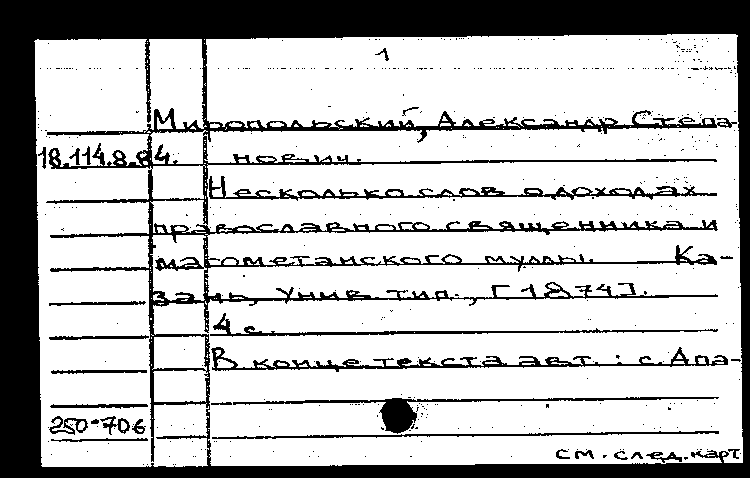 1
Миропольский, Александр Степа-
18.114.8.84. нович.
Несколько слов о доходах
православного священника и
магометанского муллы. Ка-
зань, Унив. тип., [1874].
4 с.
В конце текста авт.: с. Апа-
250-706
см. след. карт